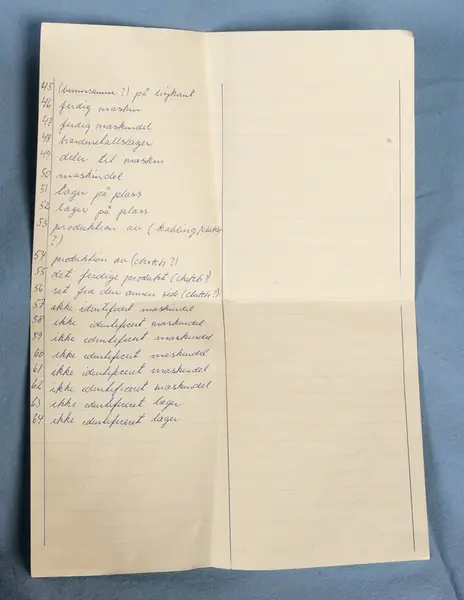 45 (bunnramme?) på singkant
46 ferdig maskin
47 ferdig maskindel
48 hardmetallslager
49 deler til maskin
50 maskindel
51 lager på plass
52 lager på plass
53 produktion av (kobling/clutch
?)
54 produktion av (clutch?)
55 det ferdige produkt (clutch?)
56 set fra den annen side (clutch?)
57 ikke identificert maskindel
58 ikke identificert maskindel
59 ikke identificert maskindel
60 ikke identificert maskindel
61 ikke identificeret maskindel
62 ikke identificeret maskindel
63 ikke identificeret lager
64 ikke identificeret lager